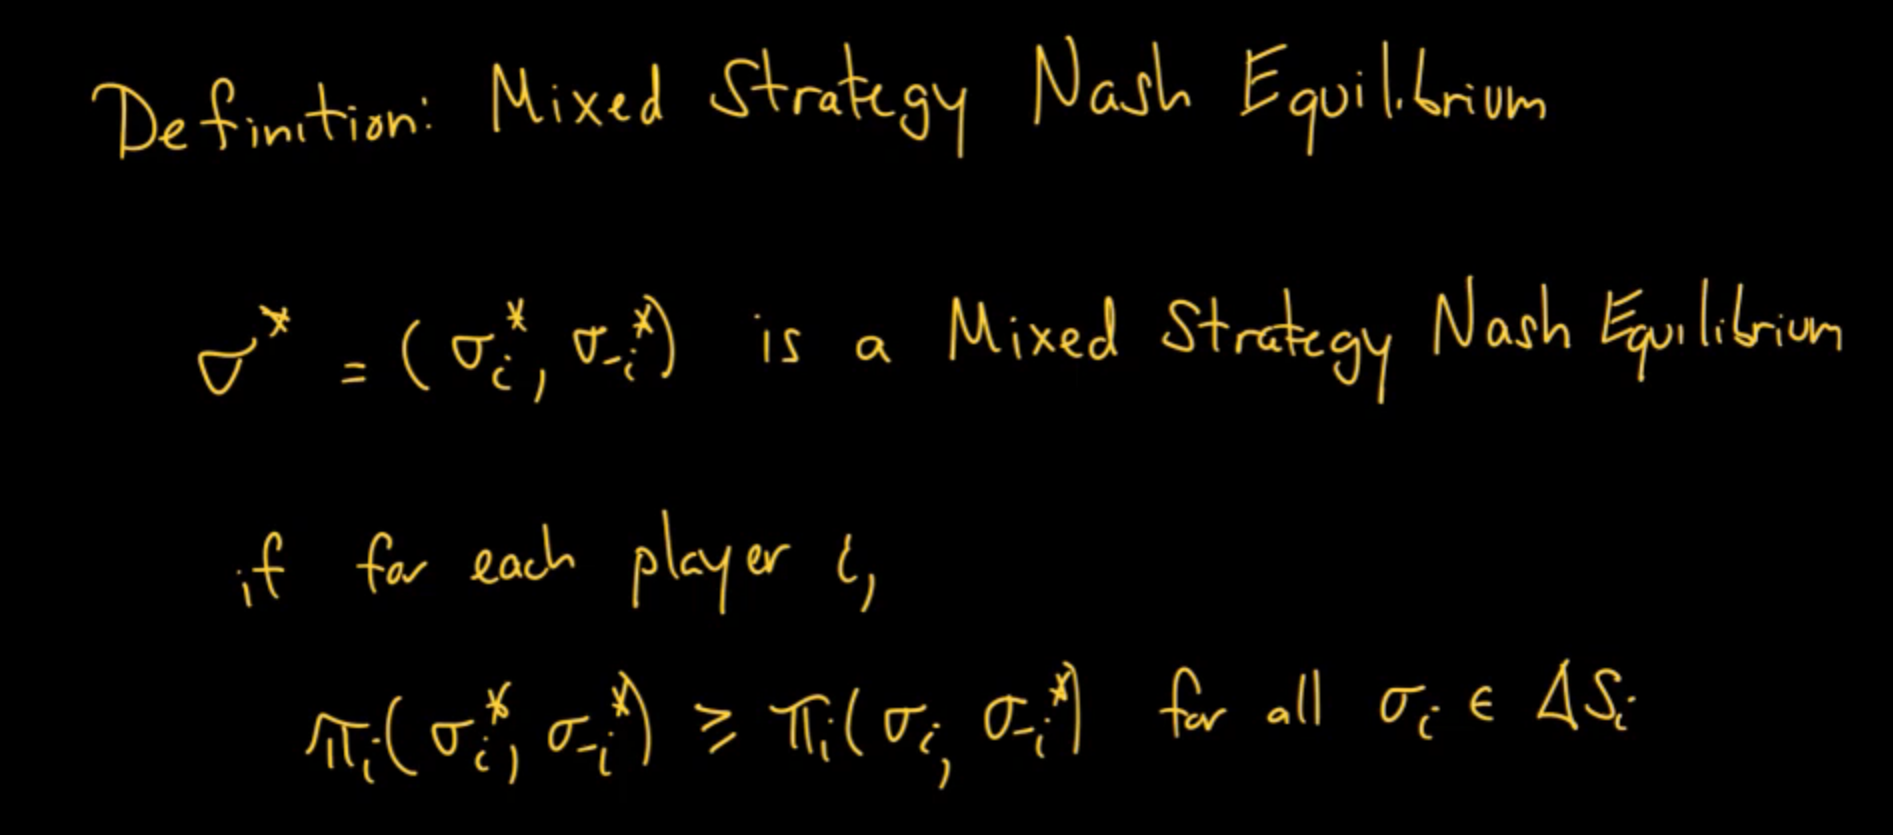 Definition: Mixed Strategy Nash Equilibrium
σ* = (σᵢ*, σ₋ᵢ*) is a Mixed Strategy Nash Equilibrium
if for each player i,
πᵢ(σᵢ*, σ₋ᵢ*) ≥ πᵢ(σᵢ, σ₋ᵢ*) for all σᵢ ∈ ΔSᵢ